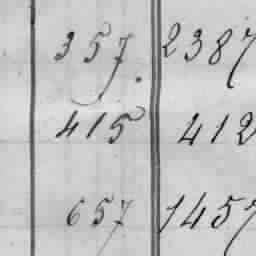 357. 2387
415 412
657 1457